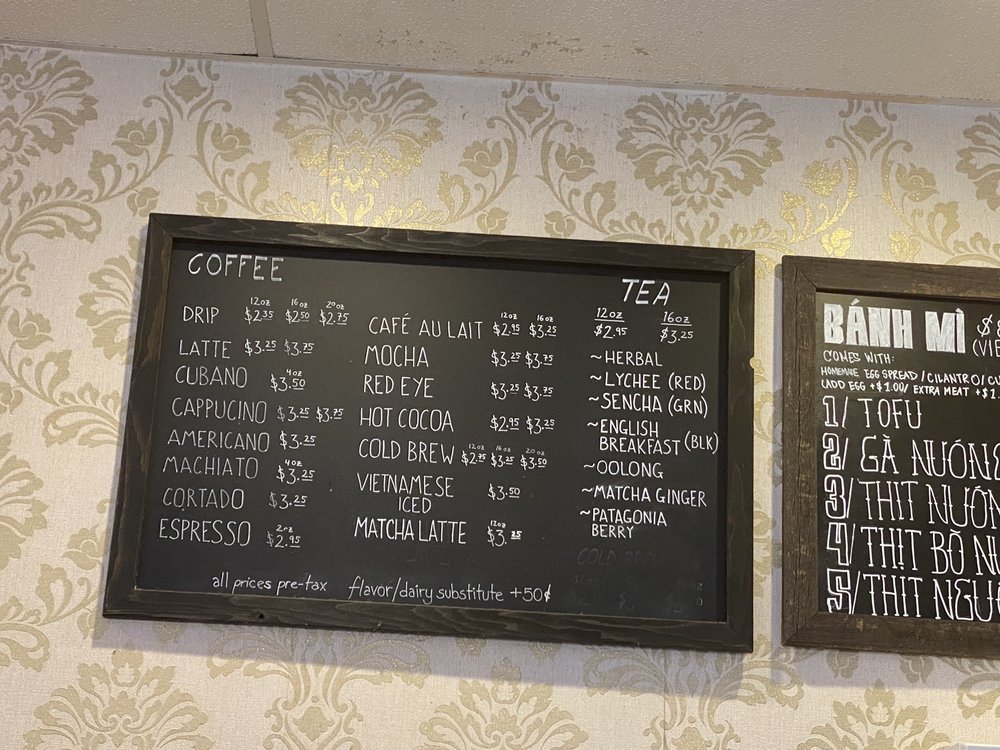 COFFEE
12oz 16oz 20oz
DRIP $2.35 $2.50 $2.75
LATTE $3.25 $3.75
4oz
CUBANO $3.50
CAPPUCINO $3.25 $3.75
AMERICANO $3.25
4oz
MACHIATO $3.25
CORTADO $3.25
2oz
ESPRESSO $2.95
12oz 16oz
CAFÉ AU LAIT $2.95 $3.25
MOCHA $3.25 $3.75
RED EYE $3.25 $3.75
HOT COCOA $2.95 $3.25
12oz 16oz 20oz
COLD BREW $2.75 $3.25 $3.50
VIETNAMESE $3.50
ICED
12oz
MATCHA LATTE $3.25
TEA
12oz 16oz
$2.95 $3.25
~HERBAL
~LYCHEE (RED)
~SENCHA (GRN)
~ENGLISH
BREAKFAST (BLK)
~OOLONG
~MATCHA GINGER
~PATAGONIA
BERRY
all prices pre-tax flavor/dairy substitute +50¢
BÁNH MÌ $
(VIE
COMES WITH:
HOMEMADE EGG SPREAD / CILANTRO / CU
(ADD EGG +$1.00/ EXTRA MEAT +$1.
1/ TOFU
2/ GÀ NƯỚN
3/ THỊT NƯỚN
4/ THỊT BÒ N
5/ THỊT NGU